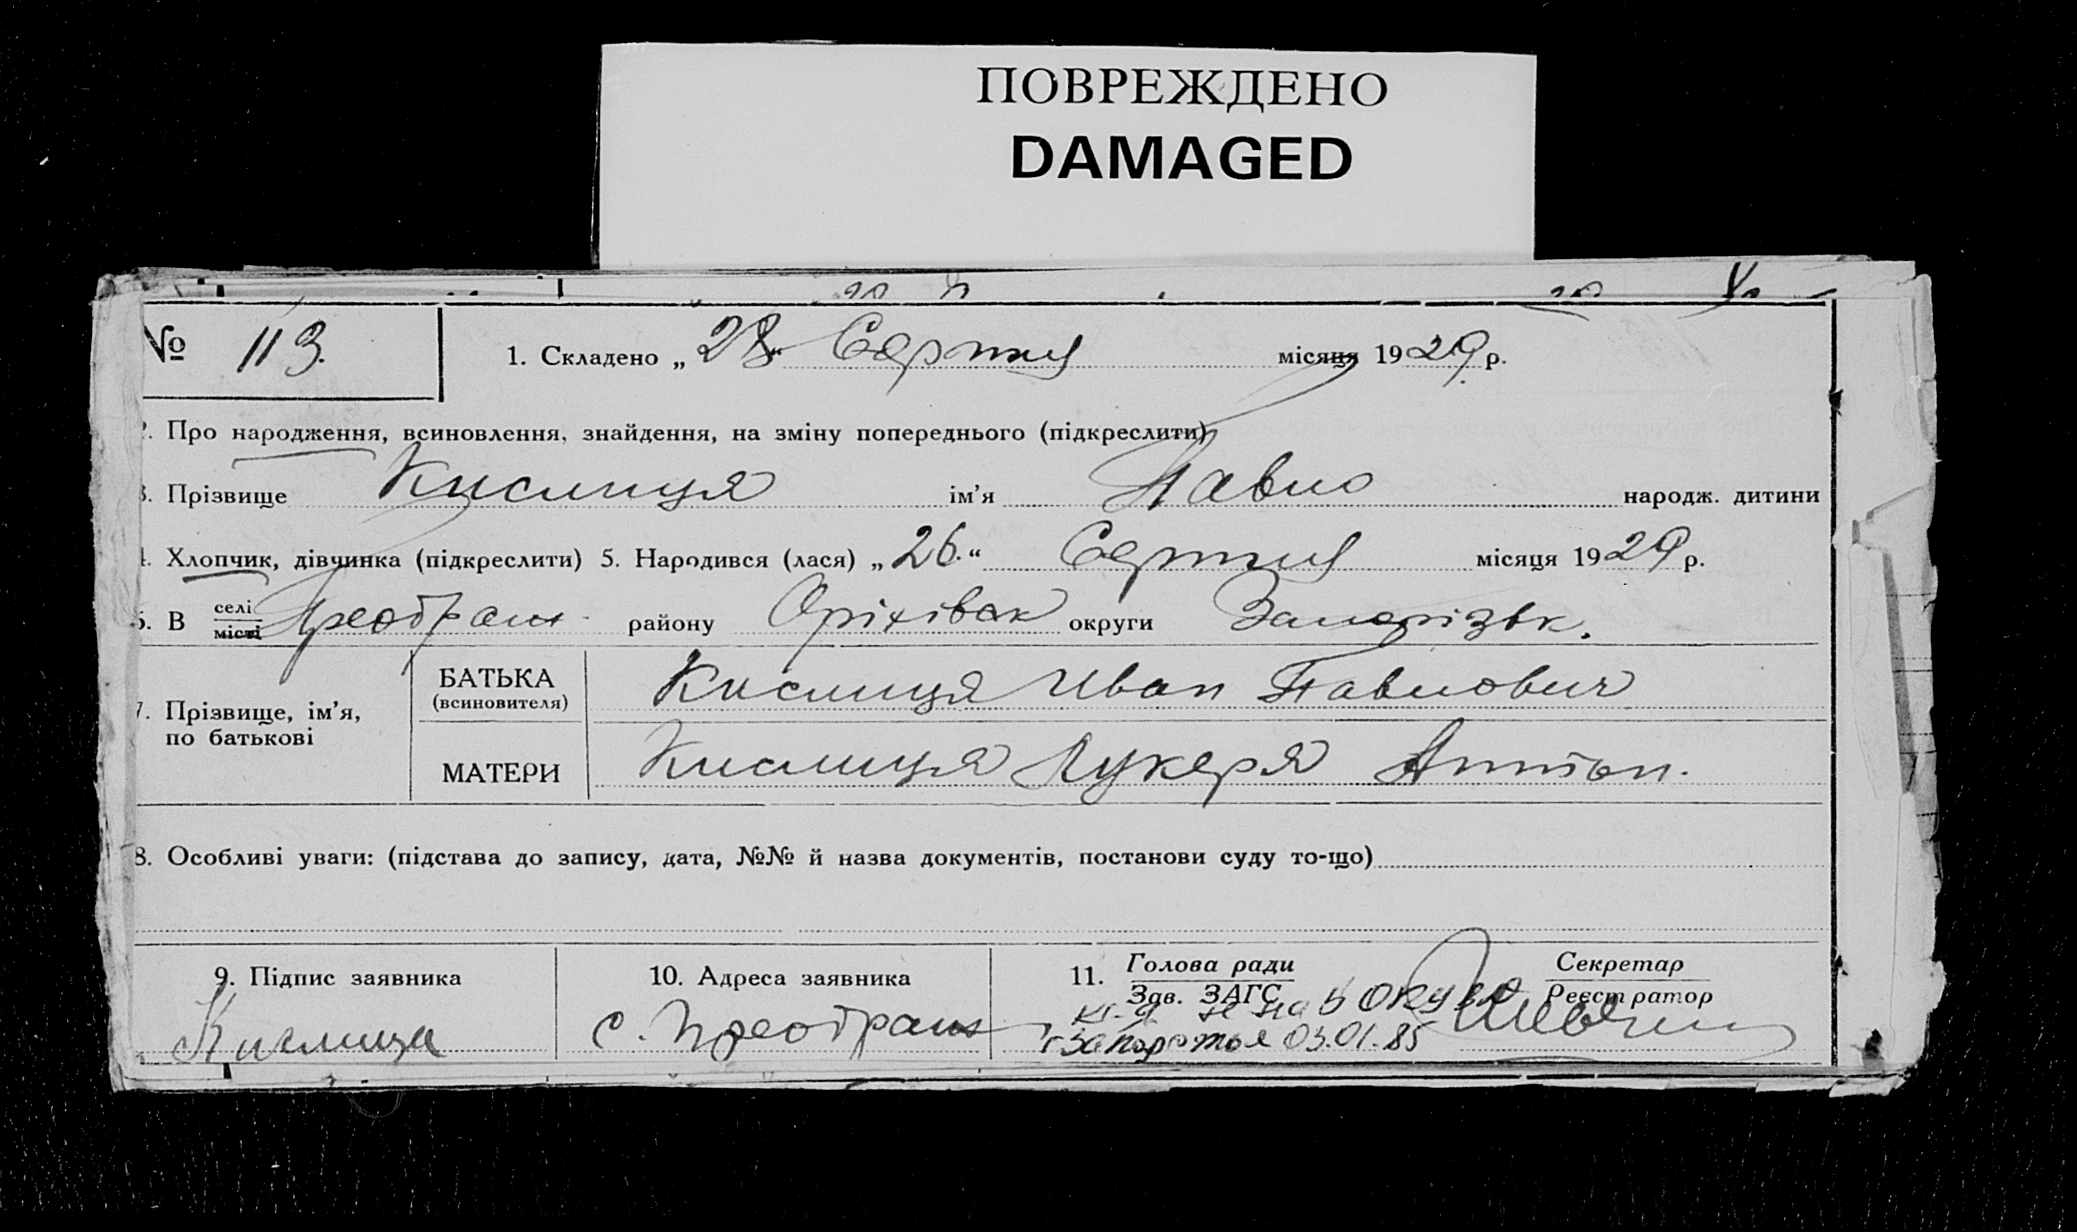 ПОВРЕЖДЕНО
DAMAGED
№ 113. 1. Складено „ 28 “ Серпня місяця 1929 р.
2. Про народження, всиновлення, знайдення, на зміну попереднього (підкреслити)
3. Прізвище Кислиця ім’я Павло народж. дитини
4. Хлопчик, дівчинка (підкреслити) 5. Народився (лася) „ 26. “ Серпня місяця 1929 р.
6. В селі місті Преображ району Оріхівськ округи Запорізьк.
7. Прізвище, ім’я, по батькові
БАТЬКА (всиновителя) Кислиця Иван Павлович
МАТЕРИ Кислиця Лукеря Антон.
8. Особливі уваги: (підстава до запису, дата, №№ й назва документів, постанови суду то-що)
9. Підпис заявника 10. Адреса заявника 11. Голова ради Зав. ЗАГС Секретар Реєстратор
Кислица с. Преображ
г Запорожья 03.01.85